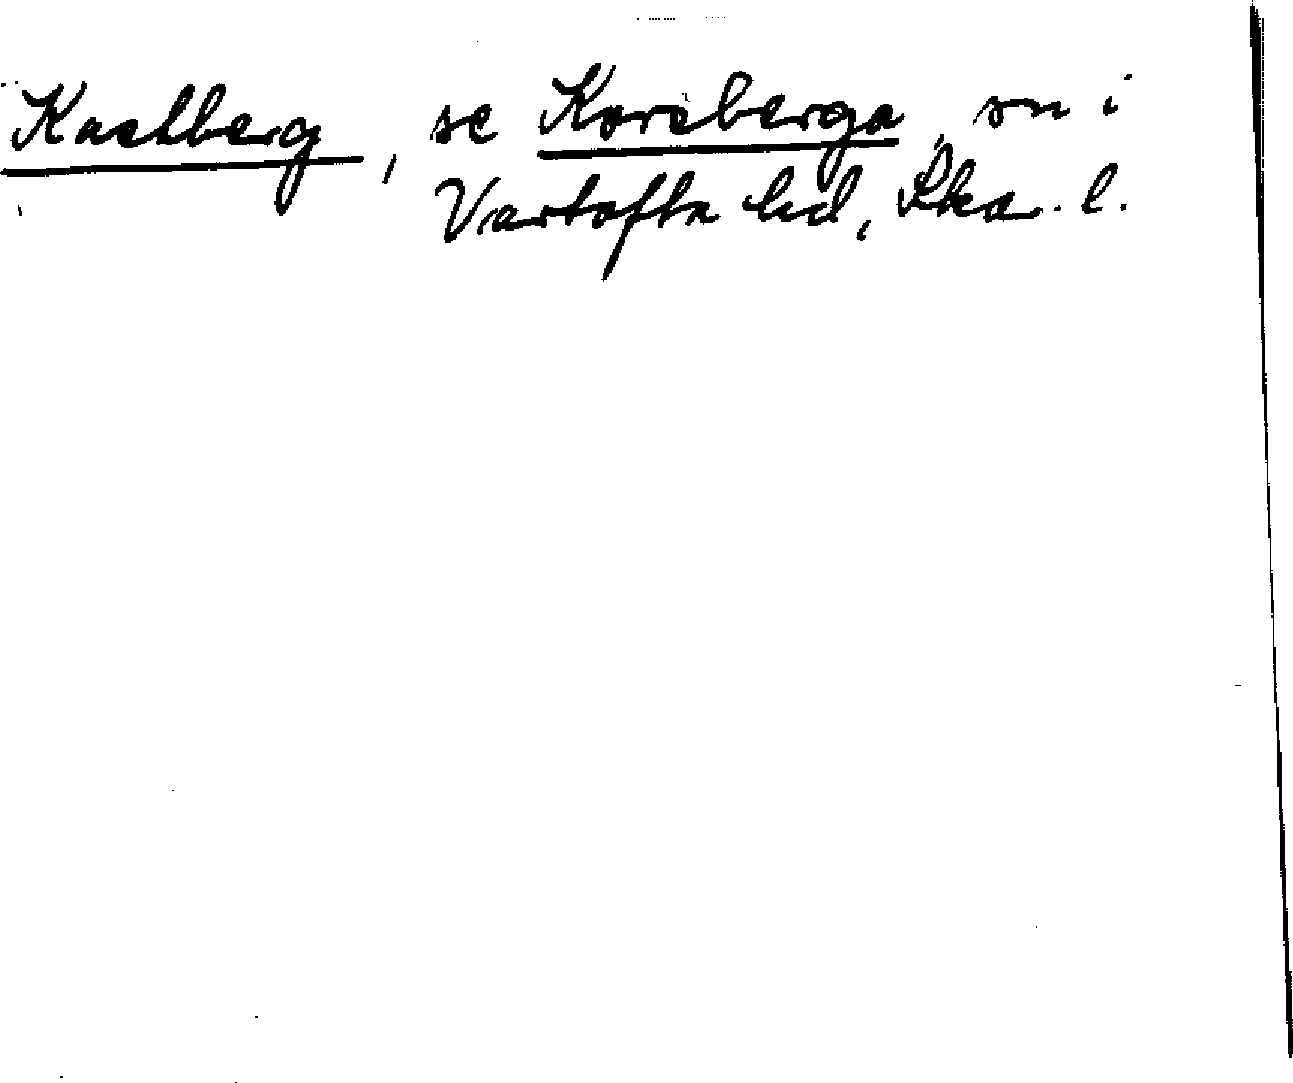 Kastberg, se Korsberga, sn i
Vartofta hd, Ska. l.